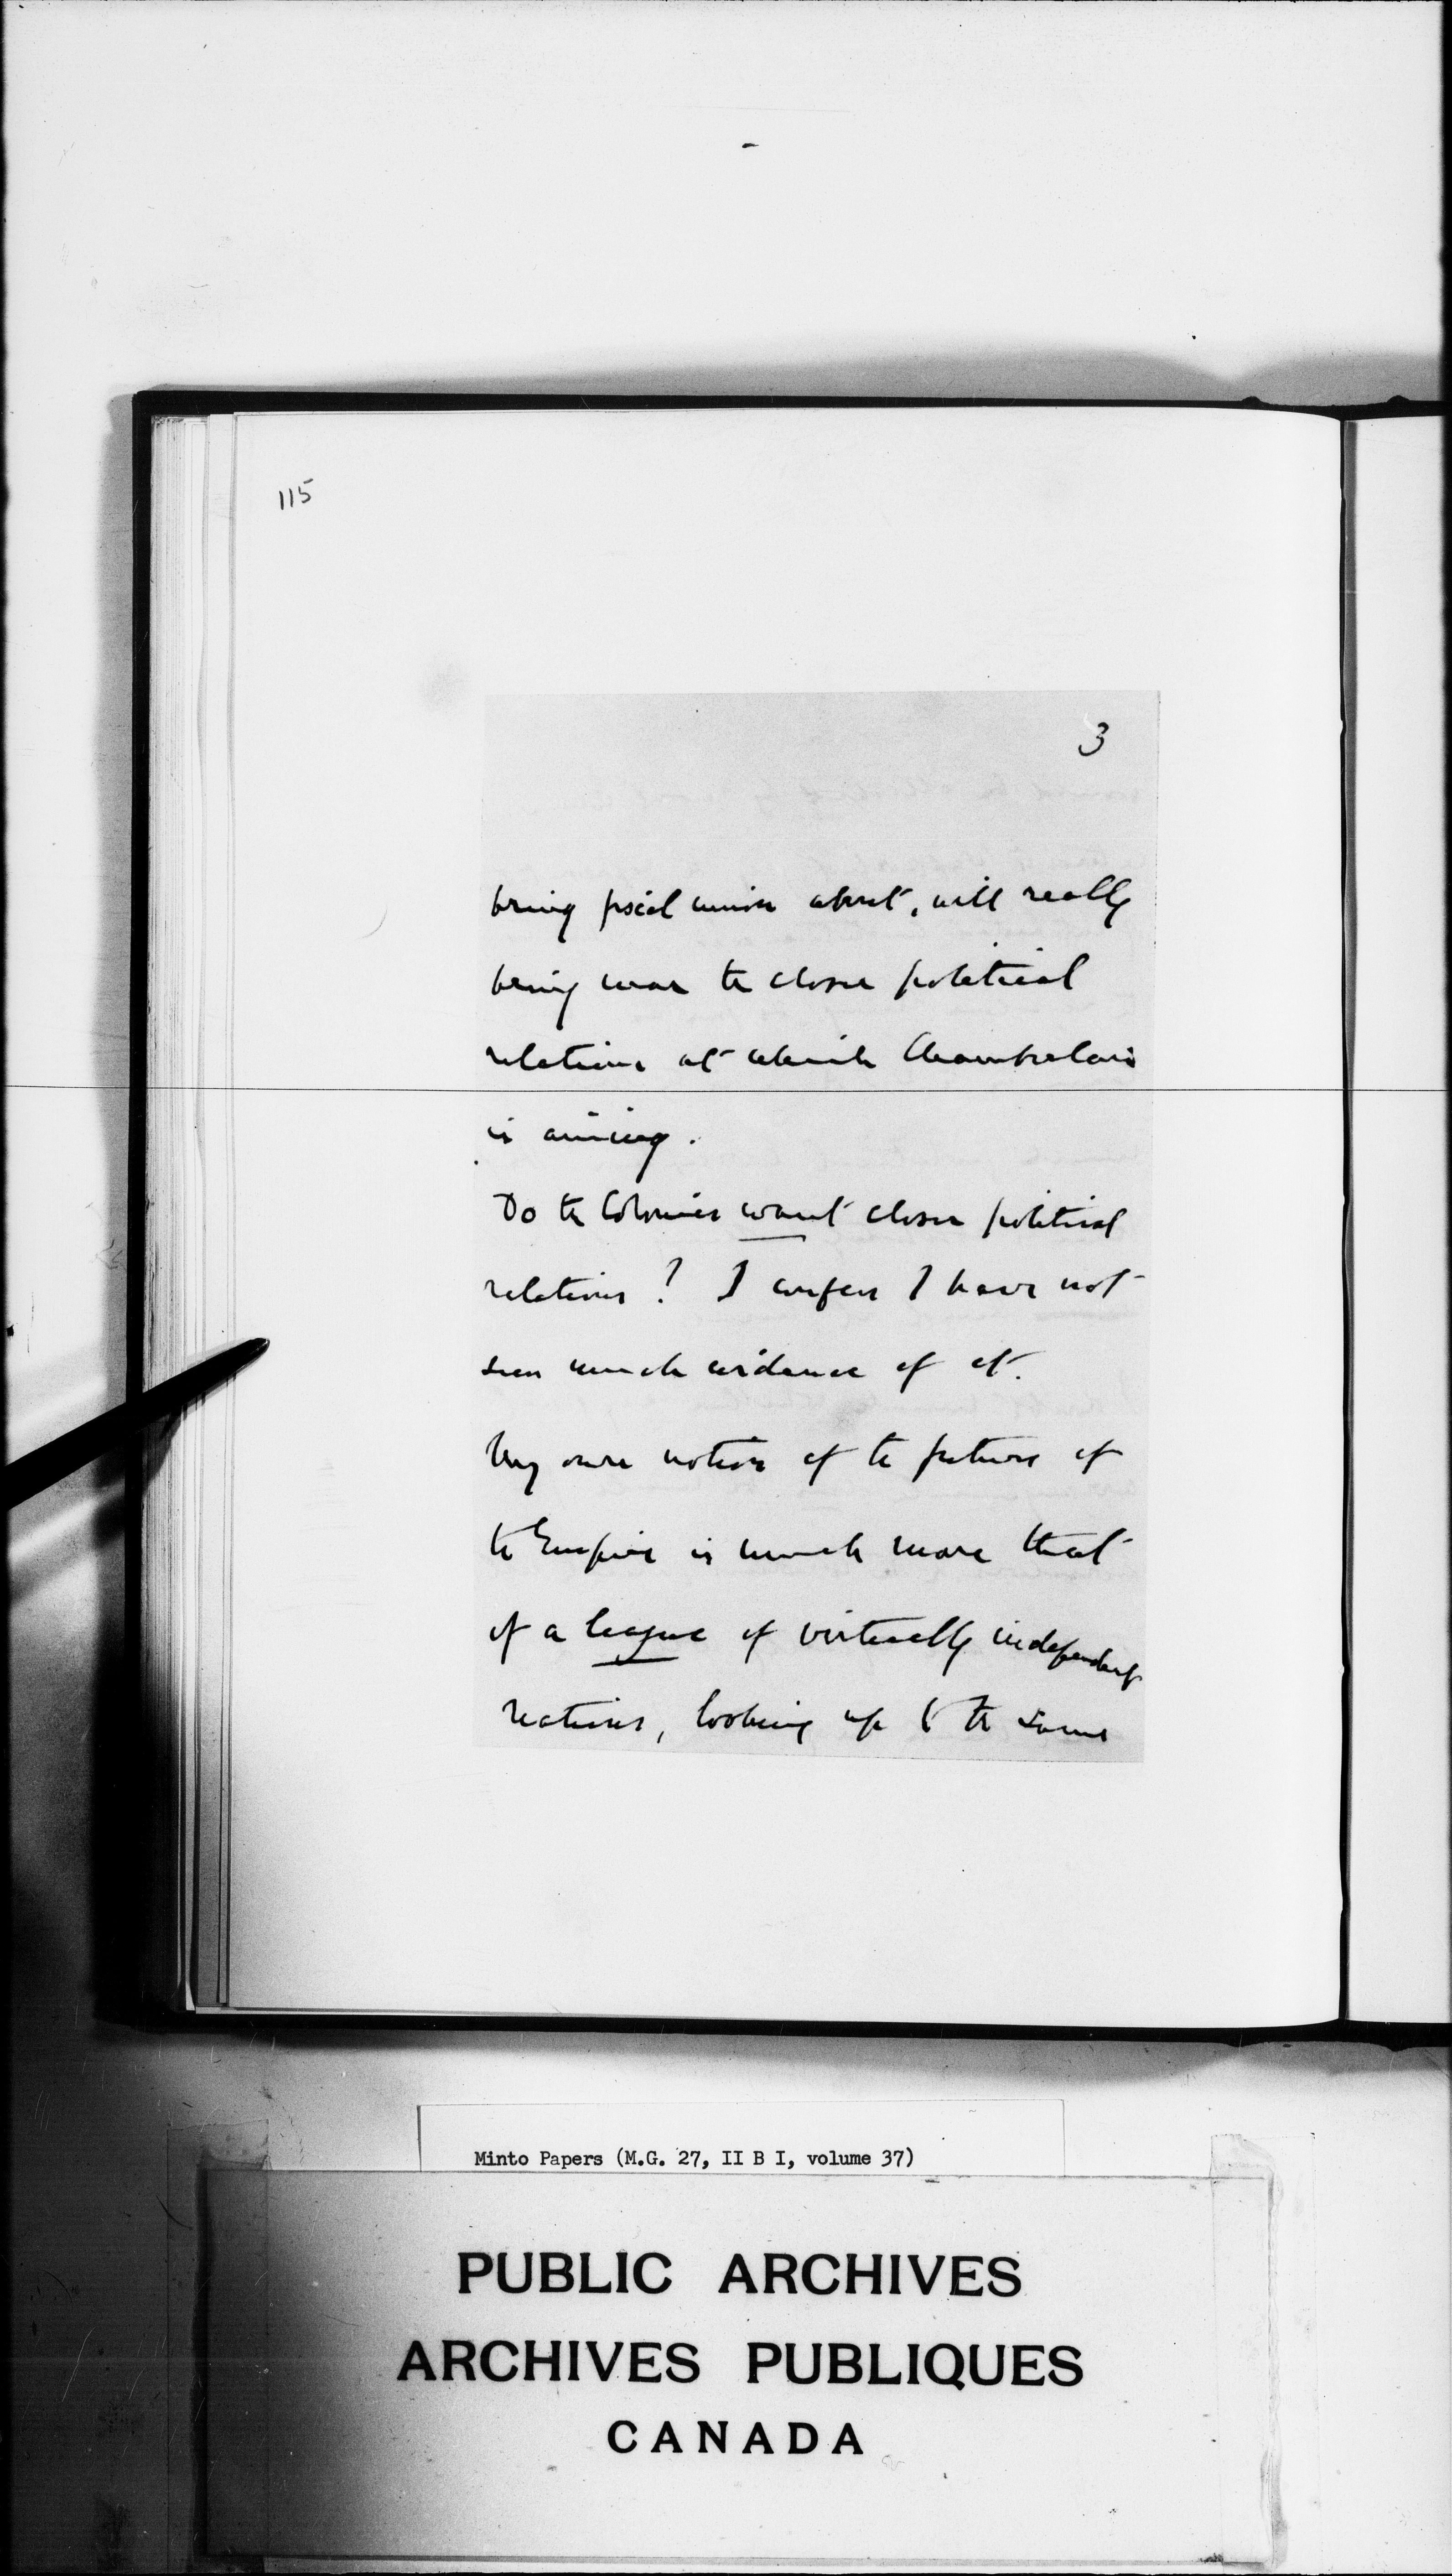 115
3
bring fiscal union about, will really
bring near the closer political
relations at which Chamberlain
is aiming.
Do the Colonies want closer political
relations? I confess I have not
seen much evidence of it.
My own notion of the future of
the Empire is much more that
of a league of virtually independent
nations, looking up to the same
Minto Papers (M.G. 27, II B I, volume 37)
PUBLIC ARCHIVES
ARCHIVES PUBLIQUES
CANADA